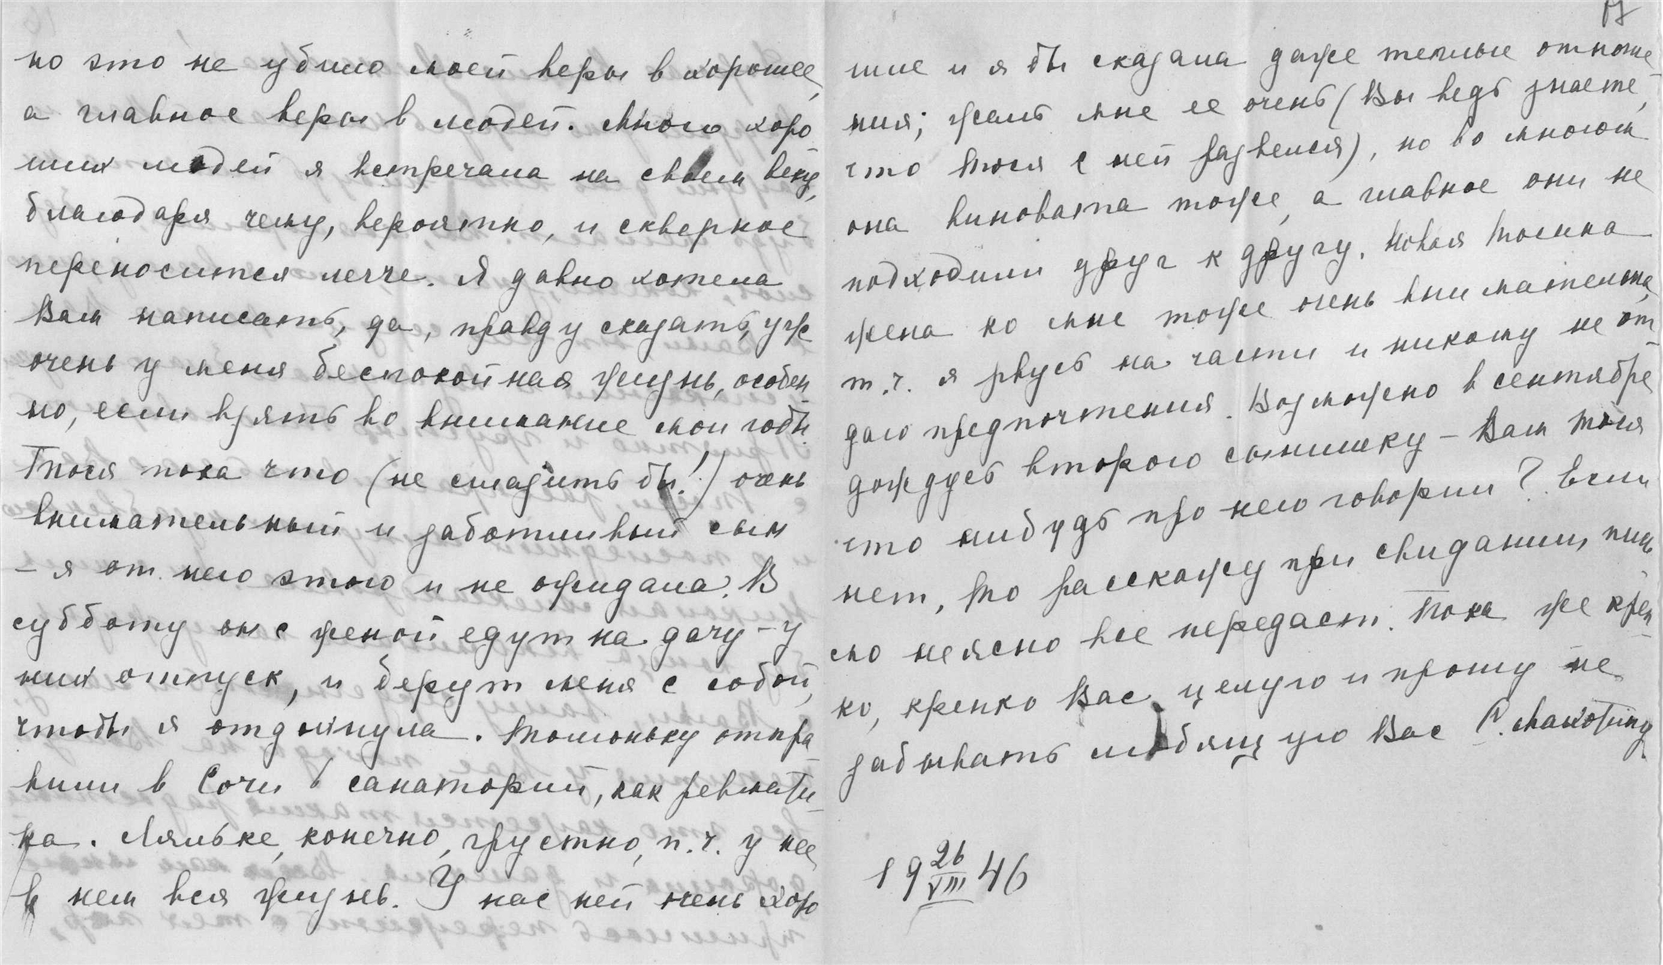 но это не убило моей веры в хорошее,
а главное веры в людей. Много хоро
ших людей я встречала на своем веку,
благодаря чему, вероятно, и скверное
переносится легче. Я давно хотела
Вам написать, да, правду сказать, уж
очень у меня беспокойная жизнь, особен
но, если взять во внимание мои годы.
Тося пока что (не сглазить бы!) очень
внимательный и заботливый сын
– я от него этого и не ожидала. В
субботу он с женой едут на дачу – у
них отпуск, и берут меня с собой,
чтобы я отдохнула. Томоньку отпра
вили в Сочи в санаторий, как ревмати
ка. Ляльке, конечно, грустно, п.ч. у нее
в нем вся жизнь. У нас с ней очень хоро
17
шие и я бы сказала даже теплые отноше
ния; жаль мне ее очень (Вы ведь знаете,
что Тося с ней развелся), но во многом
она виновата тоже, а главное они не
подходили друг к другу. Новая Тосина
жена ко мне тоже очень внимательна,
т.ч. я рвусь на части и никому не от
даю предпочтения. Возможно в сентябре
дождусь второго сынишку – Вам Тося
что нибудь про него говорил? Если
нет, то расскажу при свидании, пись
мо неясно все передаст. Пока же креп
ко, крепко Вас целую и прошу не
забывать любящую Вас С.
19 26/VIII 46